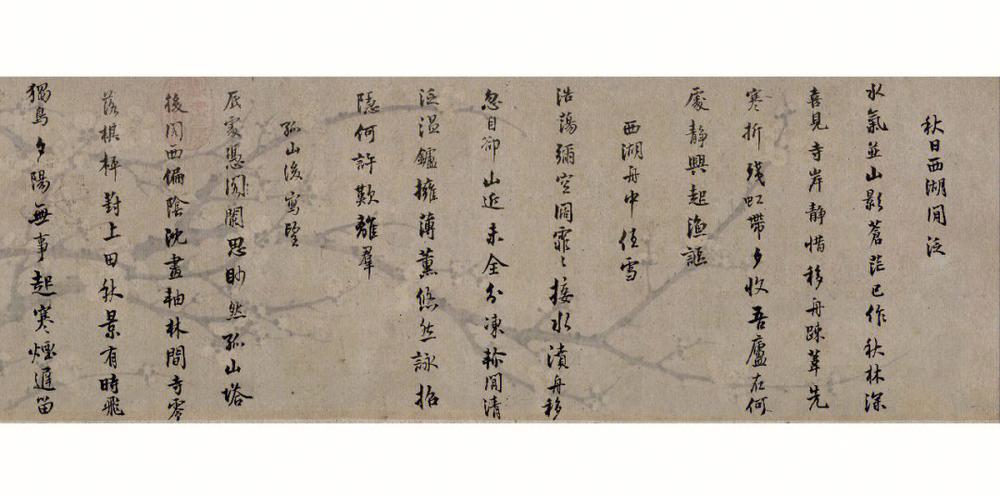 秋日西湖閒泛
水氣並山影蒼茫已作秋林深
喜見寺岸靜惜移舟踈葦先
寒折殘虹帶夕收吾廬在何
處靜興起漁謳
西湖舟中值雪
浩蕩彌空闊霏〻接水濆舟移
忽自卻山近未全分凍軫閒清
泛溫鑪擁薄薰悠然詠招
隱何許歎離羣
孤山後寫望
底處憑闌思眇然孤山塔
後閣西偏陰沈畫軸林間寺零
落棋枰葑上田秋景有時飛
獨鳥夕陽無事起寒煙遲留